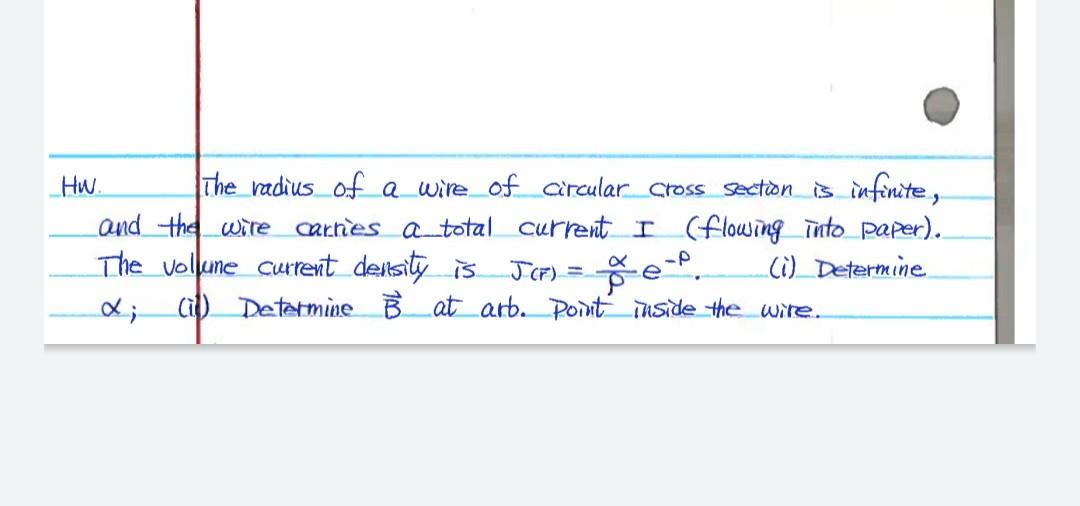 HW. The radius of a wire of circular cross section is infinite,
and the wire carries a total current I (flowing into paper).
The volume current density is J(r) = α/ρ e^-ρ. (i) Determine
α; (ii) Determine B⃗ at arb. Point inside the wire.